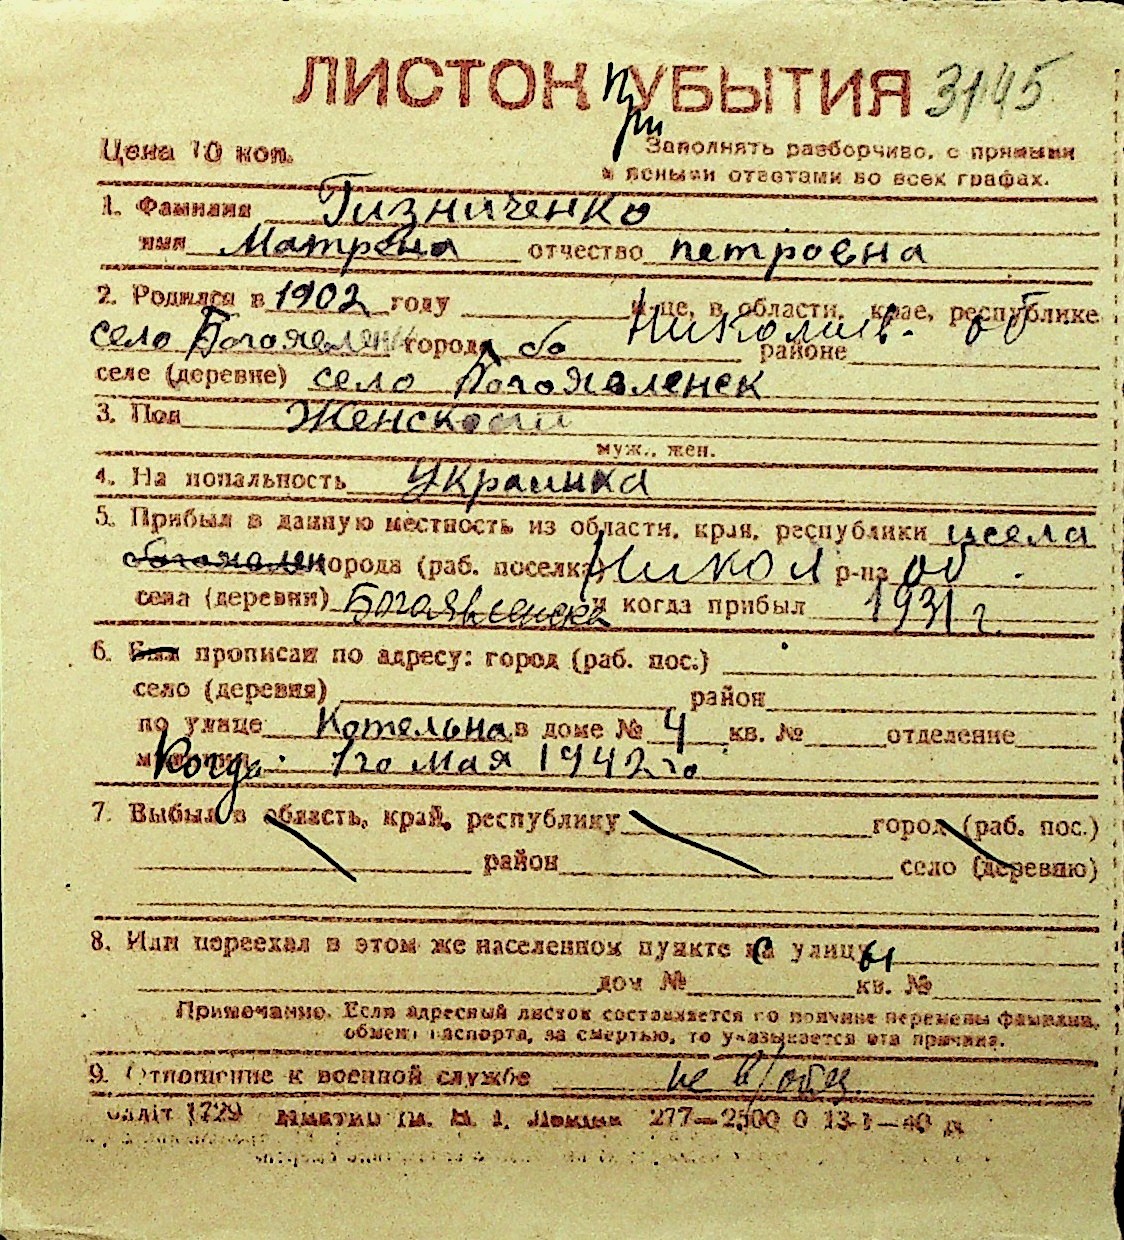 ЛИСТОК При УБЫТИЯ 3145
Цена 10 коп.
Заполнять разборчиво, с прямыми
и ясными ответами во всех графах.
1. Фамилия Гизниченко
имя Матрена отчество петровна
2. Родился в 1902 году и-це, в области, крае, республике
село Богоявлен города Николаев. об районе
селе (деревне) село Богоявленск
3. Пол Женскости
муж., жен.
4. Национальность Украинка
5. Прибыл в данную местность из области, края, республики исела
богоявлен города (раб. поселка) Никол р-на об.
села (деревни) Богоявленска и когда прибыл 1931 г.
6. Был прописан по адресу: город (раб. пос.)
село (деревня) район
по улице Котельна в доме № 4 кв. № отделение
Когда 1го мая 1942 го
7. Выбыл в область, край, республику город (раб. пос.)
район село (деревню)
8. Или переехал в этом же населенном пункте с улицы
дом № кв. №
Примечание. Если адресный листок составляется по причине перемены фамилии,
обмена паспорта, за смертью, то указывается эта причина.
9. Отношение к военной службе не в/обяз
1729 277—2500 0 13-I—40